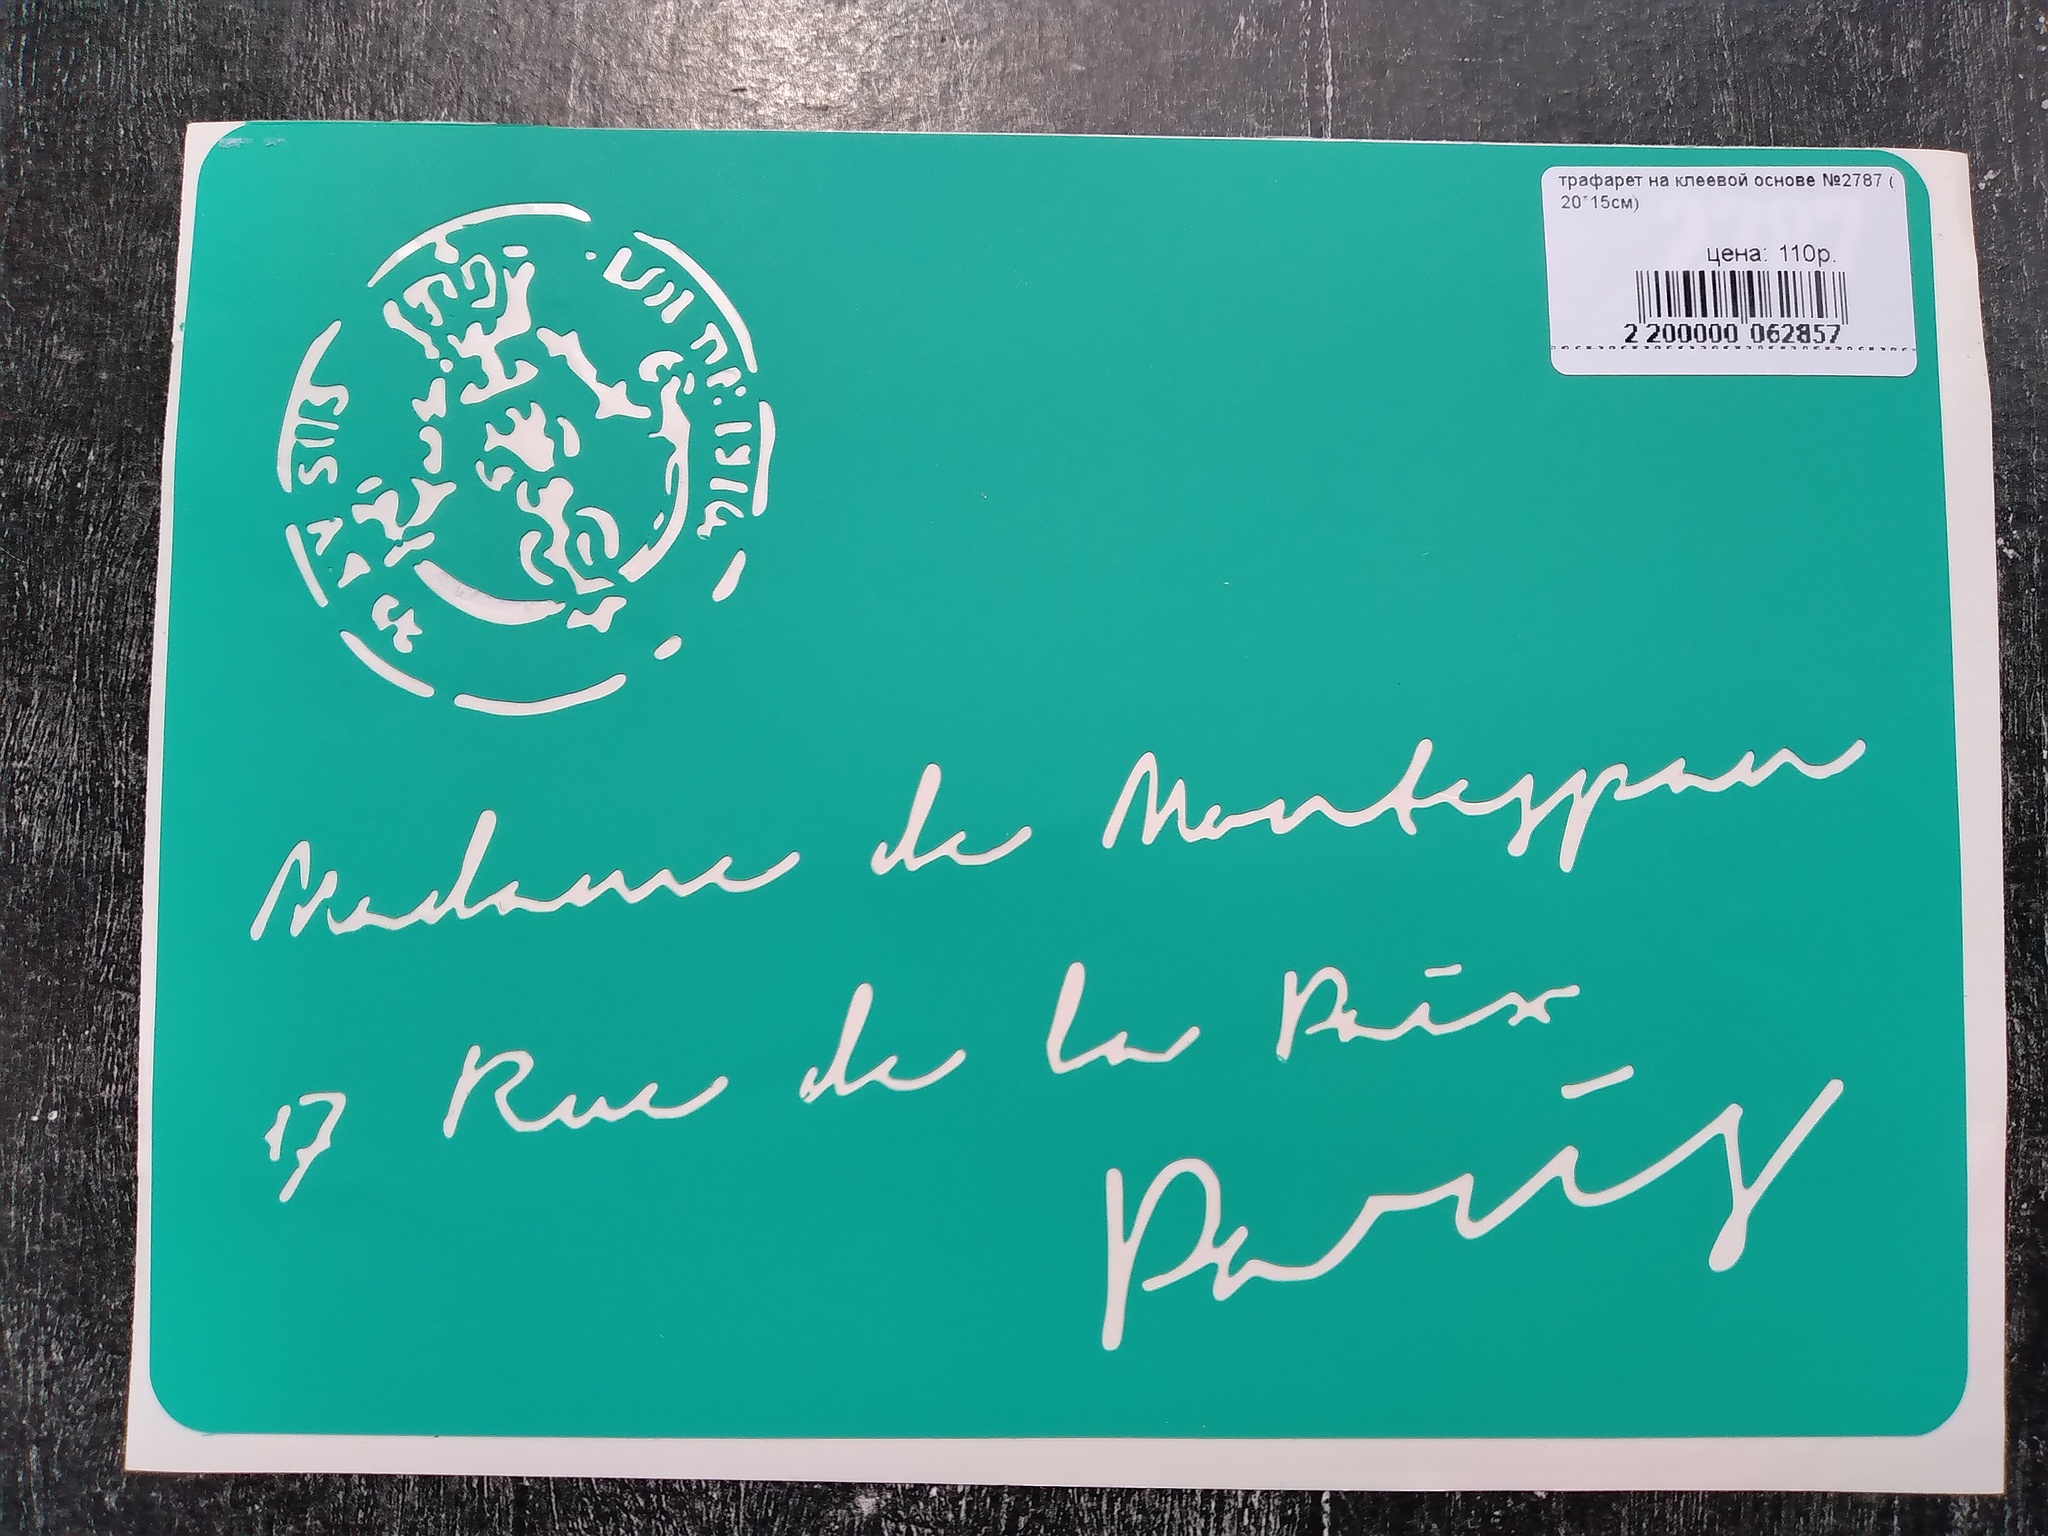 трафарет на клеевой основе №2787 (
20*15см)
цена: 110р.
2 200000 062857
Madame de Montespan
17 Rue de la Paix
Paris